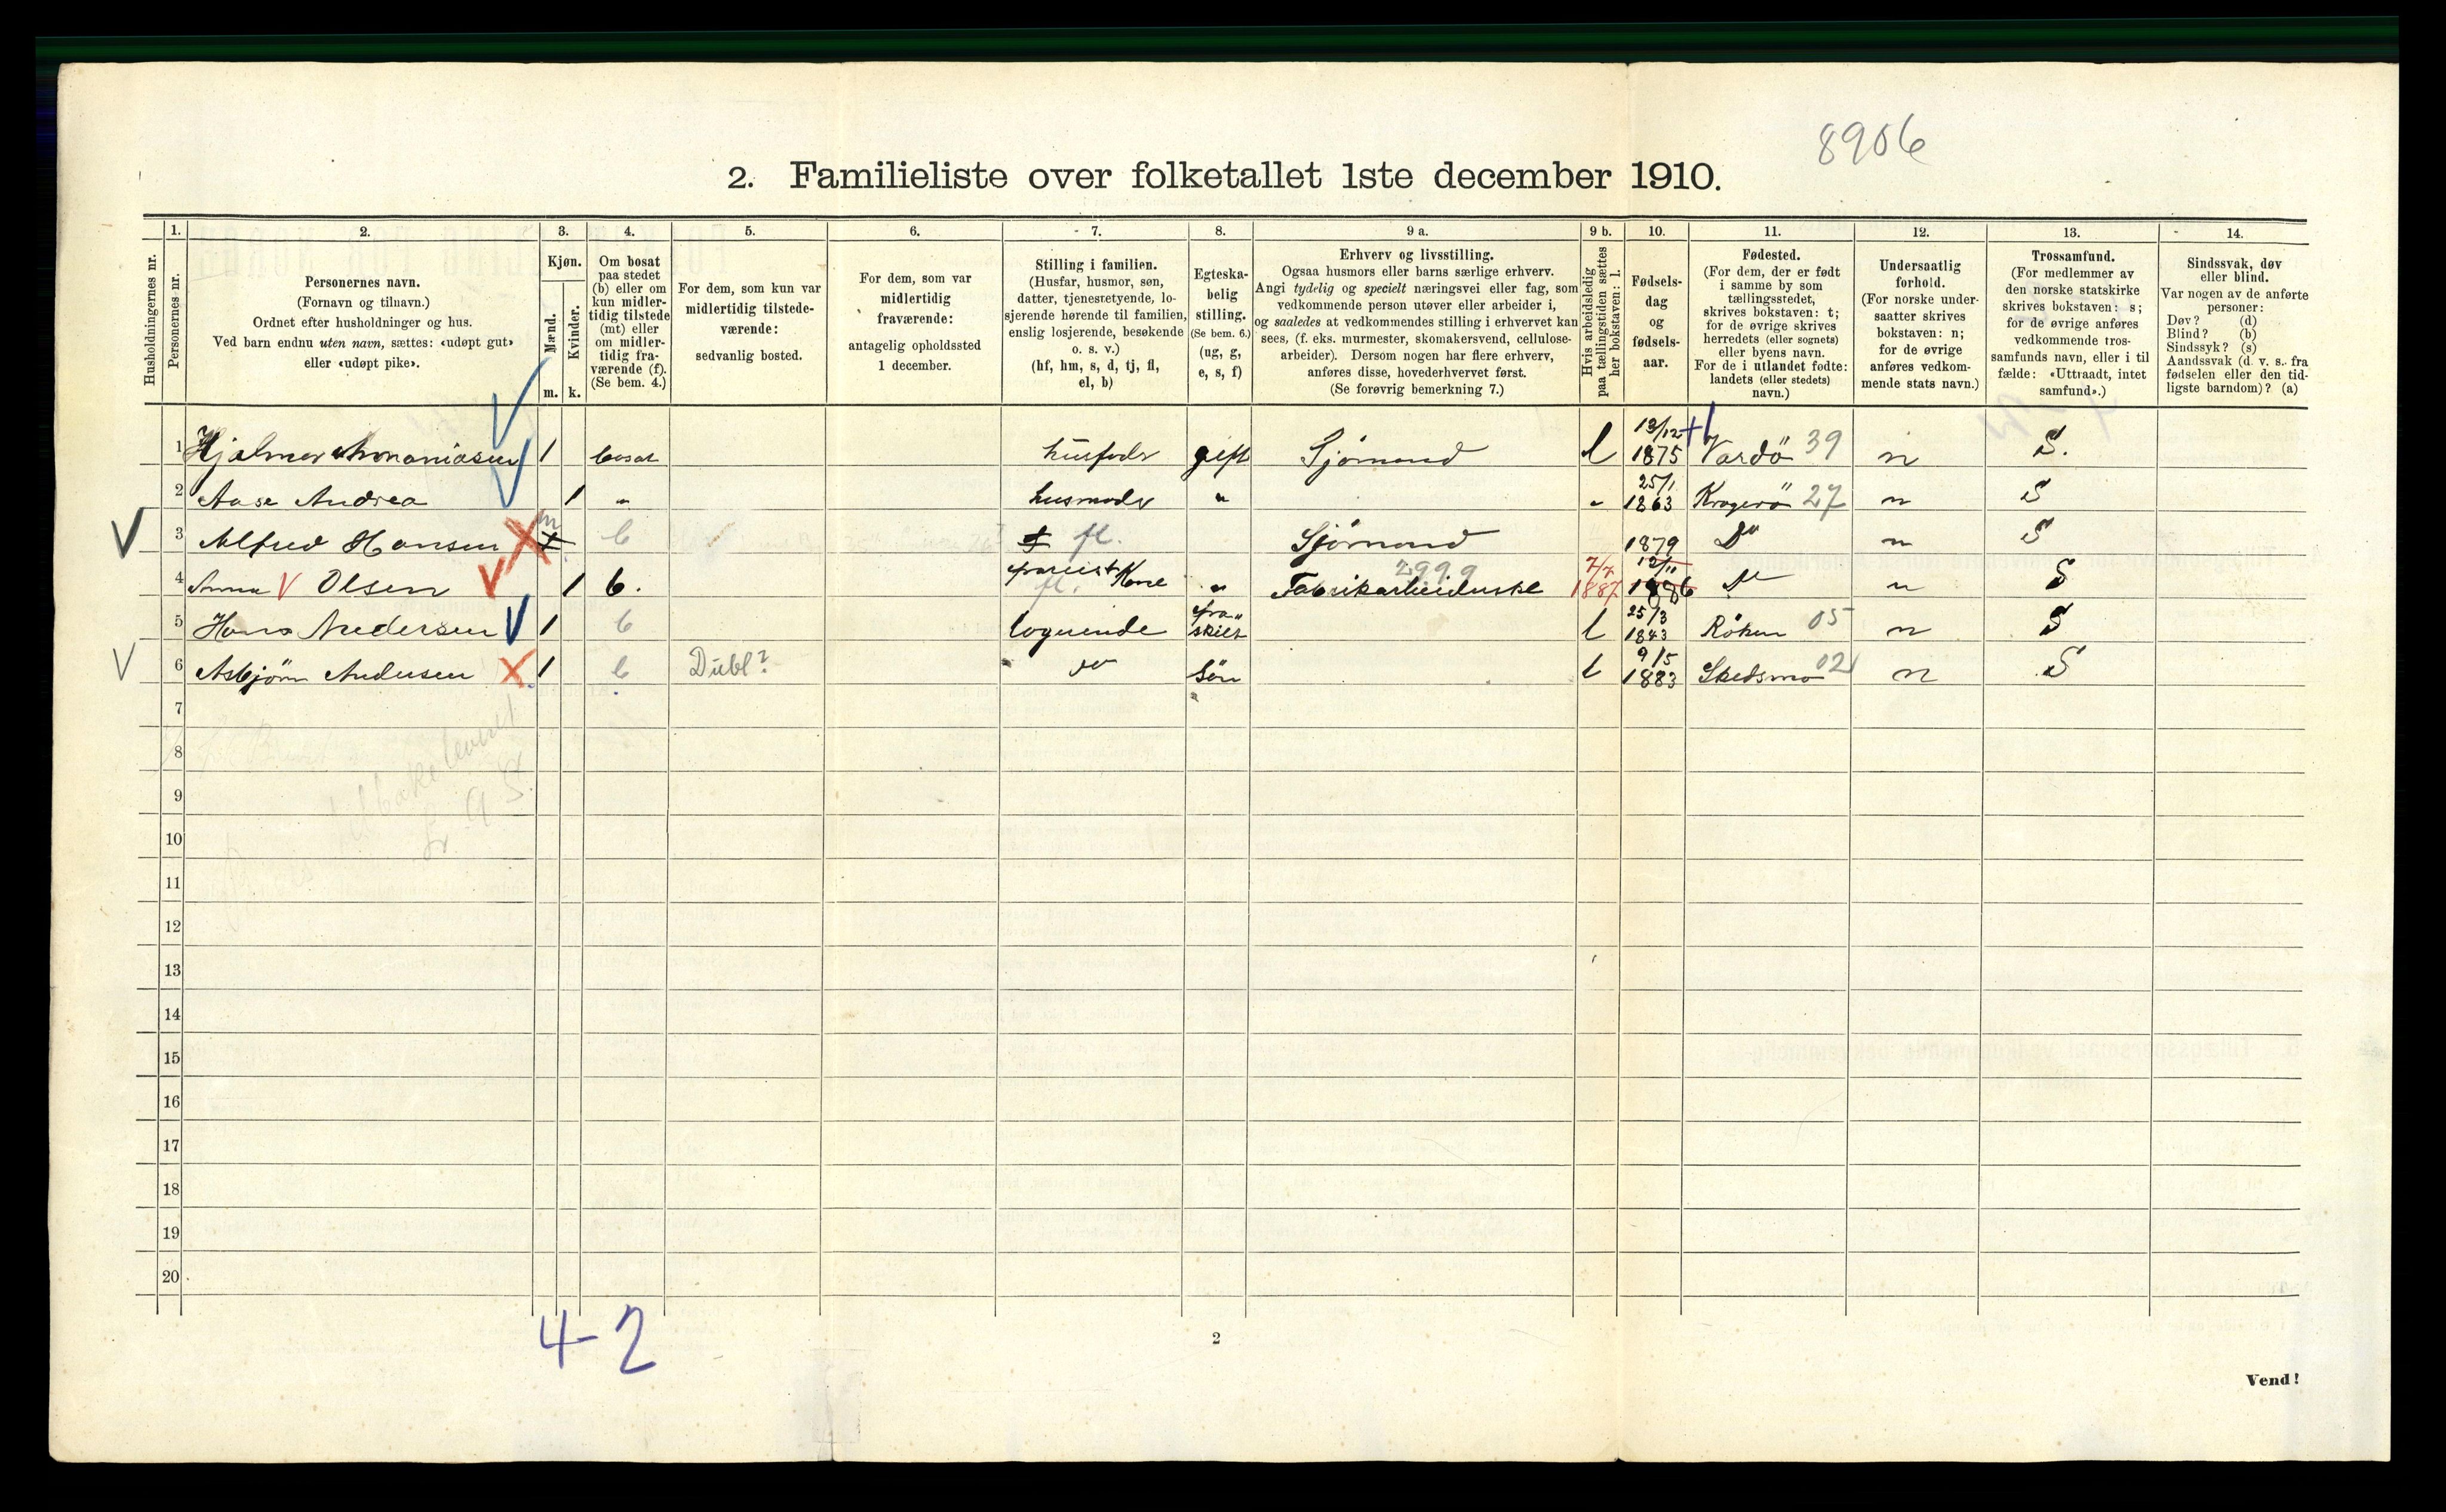 8906
2. Familieliste over folketallet 1ste december 1910.
Husholdningernes nr.
1. Personernes nr.
2. Personernes navn.
(Fornavn og tilnavn.)
Ordnet efter husholdninger og hus.
Ved barn endnu uten navn, sættes: «udøpt gut»
eller «udøpt pike».
3. Kjøn.
Mænd. m.
Kvinder. k.
4. Om bosat
paa stedet
(b) eller om
kun midler-
tidig tilstede
(mt) eller
om midler-
tidig fra-
værende (f).
(Se bem. 4.)
5. For dem, som kun var
midlertidig tilstede-
værende:
sedvanlig bosted.
6. For dem, som var
midlertidig
fraværende:
antagelig opholdssted
1 december.
7. Stilling i familien.
(Husfar, husmor, søn,
datter, tjenestetyende, lo-
sjerende hørende til familien,
enslig losjerende, besøkende
o. s. v.)
(hf, hm, s, d, tj, fl,
el, b)
8. Egteska-
belig
stilling.
(Se bem. 6.)
(ug, g,
e, s, f)
9 a. Erhverv og livsstilling.
Ogsaa husmors eller barns særlige erhverv.
Angi tydelig og specielt næringsvei eller fag, som
vedkommende person utøver eller arbeider i,
og saaledes at vedkommendes stilling i erhvervet kan
sees, (f. eks. murmester, skomakersvend, cellulose-
arbeider). Dersom nogen har flere erhverv,
anføres disse, hovederhvervet først.
(Se forøvrig bemerkning 7.)
9 b. Hvis arbeidsledig
paa tællingstiden sættes
her bokstaven: l.
10. Fødsels-
dag
og
fødsels-
aar.
11. Fødested.
(For dem, der er født
i samme by som
tællingsstedet,
skrives bokstaven: t;
for de øvrige skrives
herredets (eller sognets)
eller byens navn.
For de i utlandet fødte:
landets (eller stedets)
navn.)
12. Undersaatlig
forhold.
(For norske under-
saatter skrives
bokstaven: n;
for de øvrige
anføres vedkom-
mende stats navn.)
13. Trossamfund.
(For medlemmer av
den norske statskirke
skrives bokstaven: s;
for de øvrige anføres
vedkommende tros-
samfunds navn, eller i til
fælde: «Uttraadt, intet
samfund».)
14. Sindssvak, døv
eller blind.
Var nogen av de anførte
personer:
Døv? (d)
Blind? (b)
Sindssyk? (s)
Aandssvak (d. v. s. fra
fødselen eller den tid-
ligste barndom)? (a)
1 Hjalmar Ananiasen 1 bosat husfader gift Sjömand l 13/12 1875 Vardö 39 n S.
2 Aase Andrea 1 " husmoder " " 25/1 1863 Kragerö 27 n S
3 Alfred Hansen m b fl. Sjömand 1879 Do n S
4 Anna Olsen 1 b. Kone fl. " Fabrikarbeiderske 2999 7/7 1887 12/11 1886 Do n S
5 Hans Andersen 1 b logerende fra skilt l 25/3 1843 Röken 05 n S
6 Asbjörn Andersen 1 b Dubl? Do Sön l 9/5 1883 Skedsmo 02 n S
7
8
9
10
11
12
13
14
15
16
17
18
19
20
4-2
2
Vend!